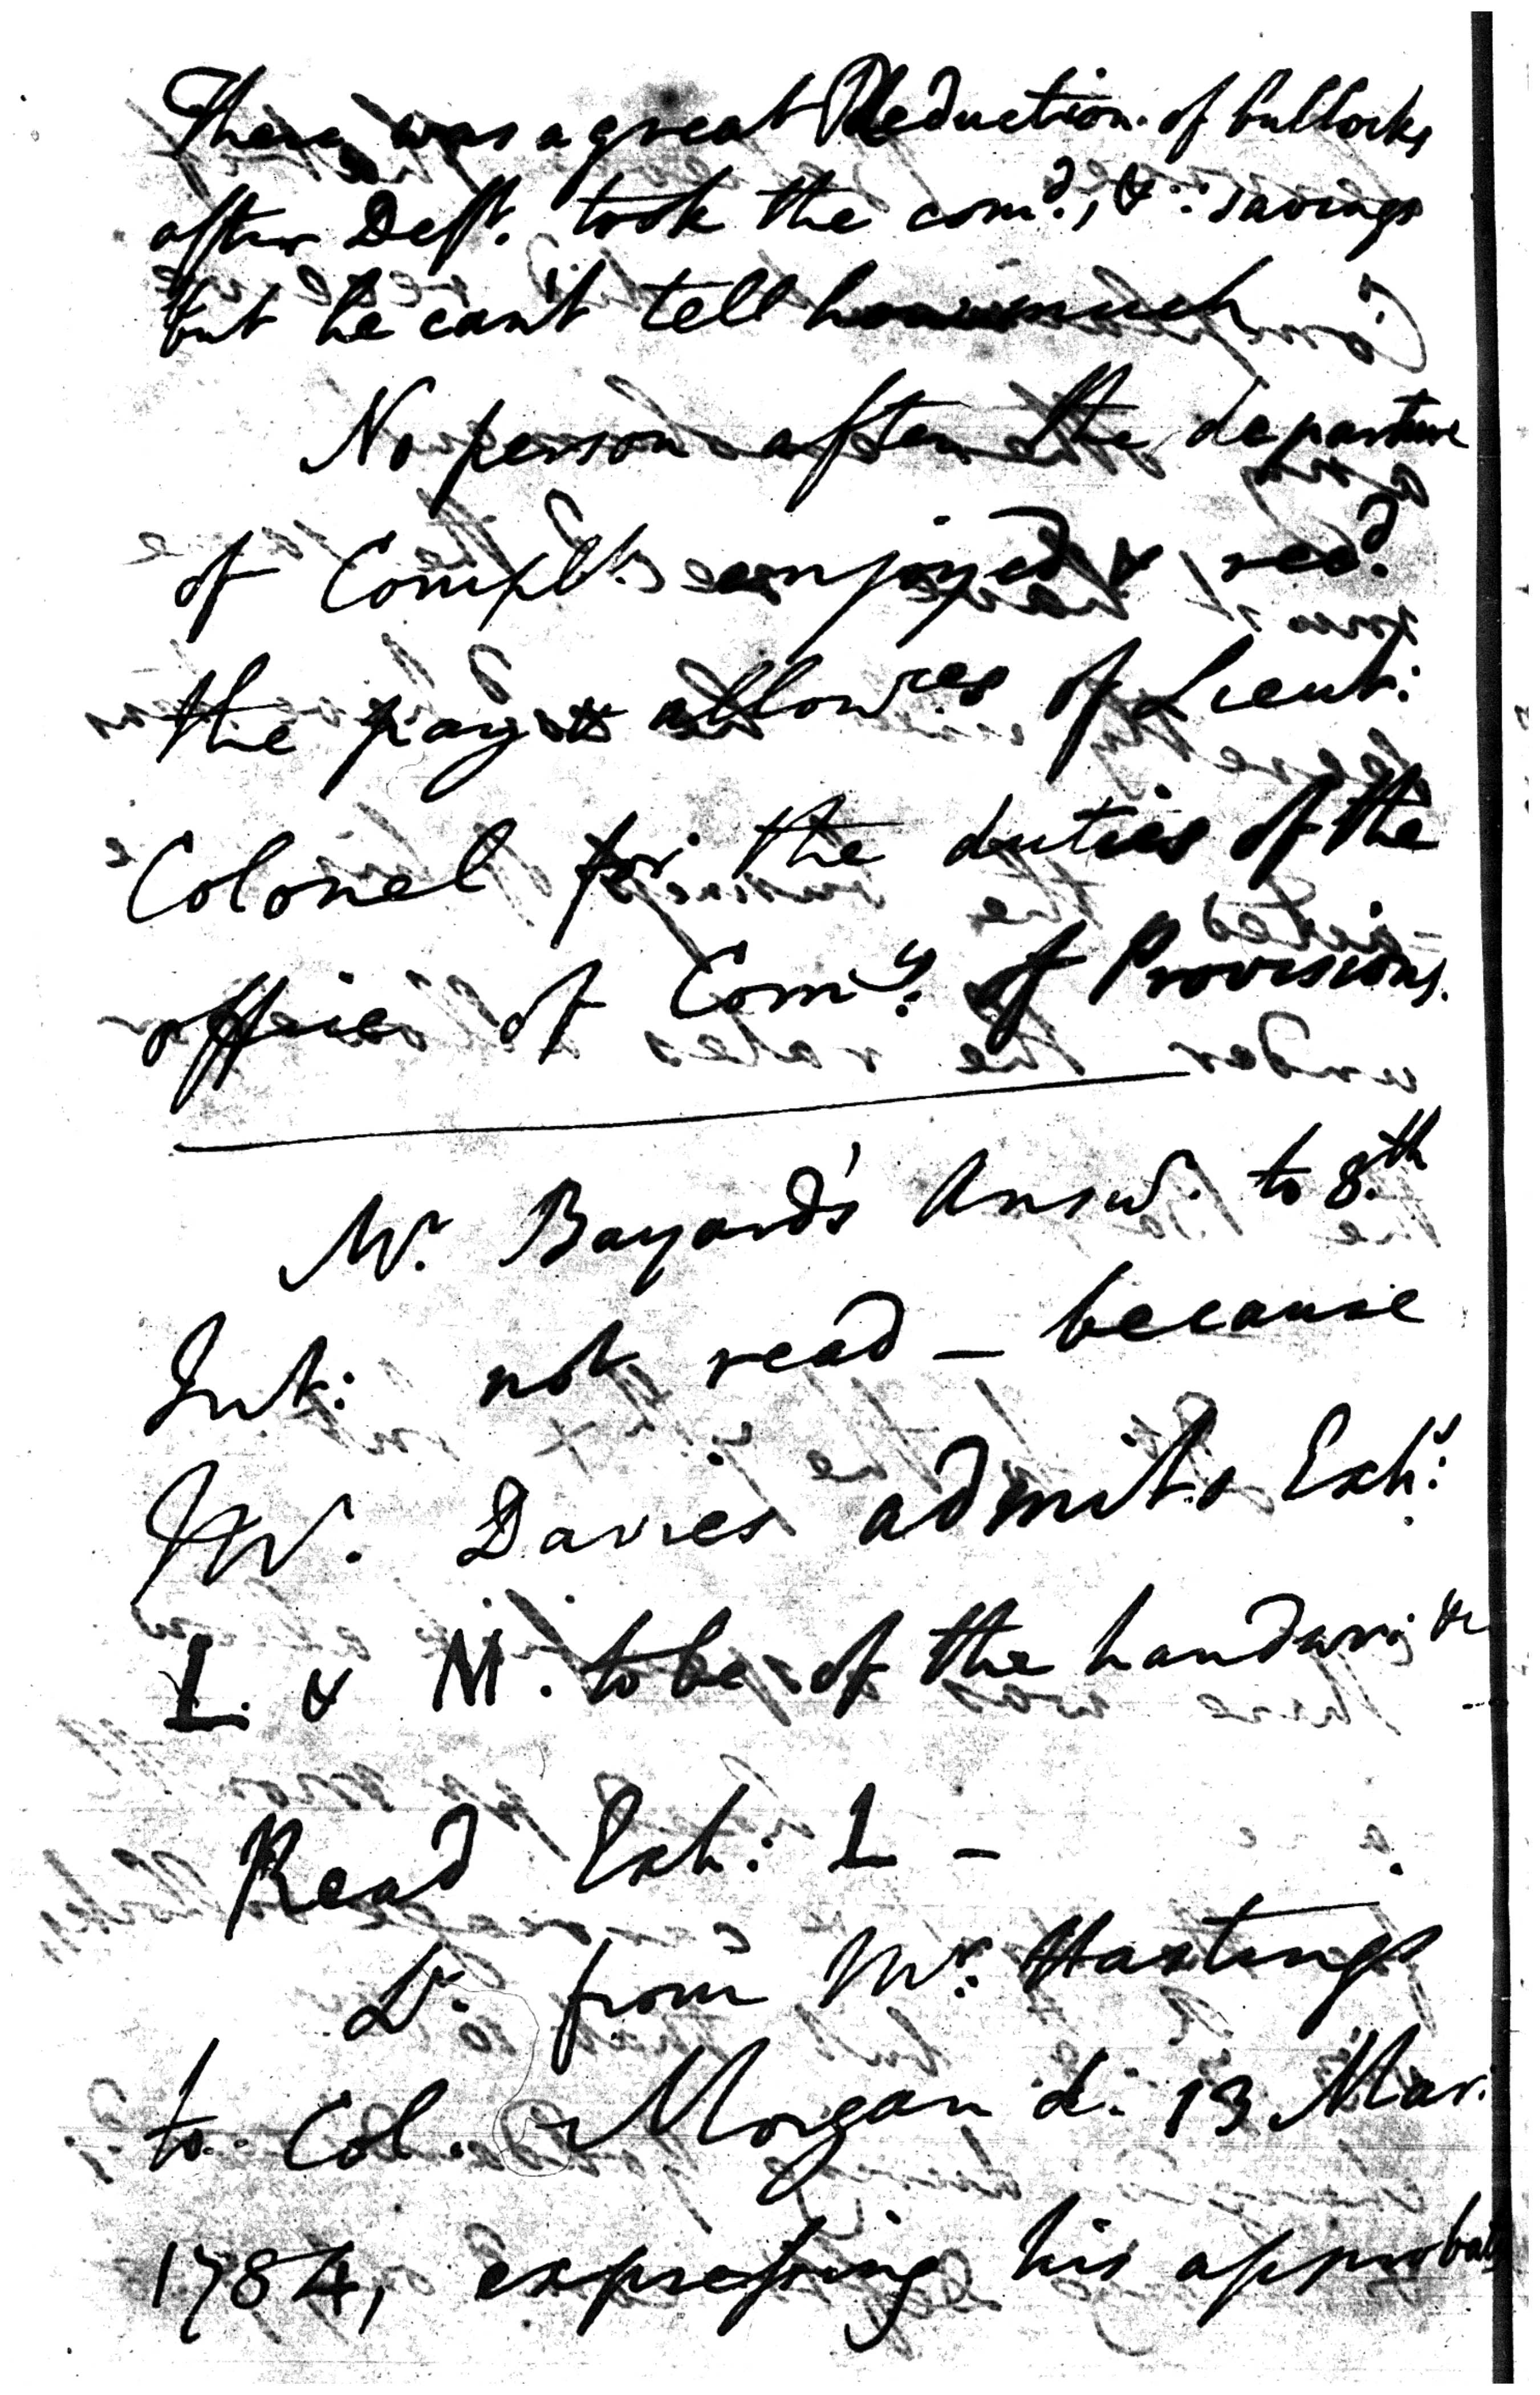 There was a great Reduction of bullocks
after Deft. took the comd., & savings
but he can't tell how much
No person after the departure
of Complt. enjoyed & recd.
the pay & allowces of Lieut:
Colonel for the duties of the
office of Comy. of Provisions.
Mr. Bayard's Answ. to 8.th
Int: not read — because
Mr. Davies admits Exh:
L. & M. to be of the handwri
Read Exh: L —
Lr. from Mr. Hastings
to Col. Morgan d. 13 Mar.
1784, expressing his approbat